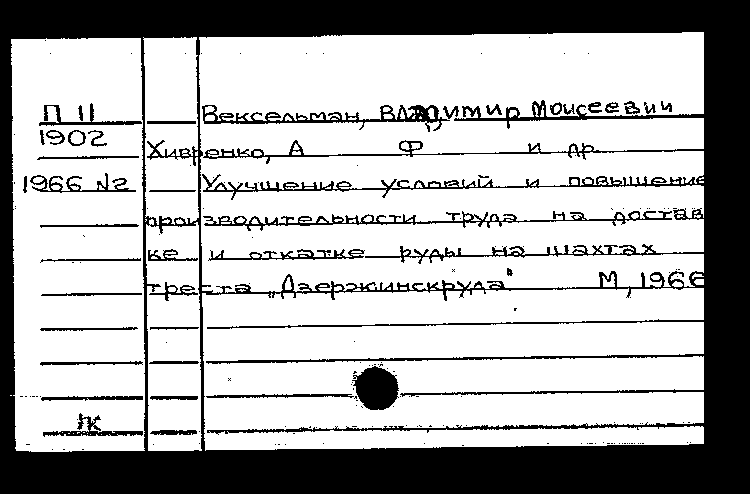 П 11 Вексельман, Владимир Моисеевич
1902 Хивренко, А Ф и др.
1966 №2 Улучшение условий и повышение
производительности труда на достав
ке и откатке руды на шахтах
треста „Дзержинскруда" М, 1966